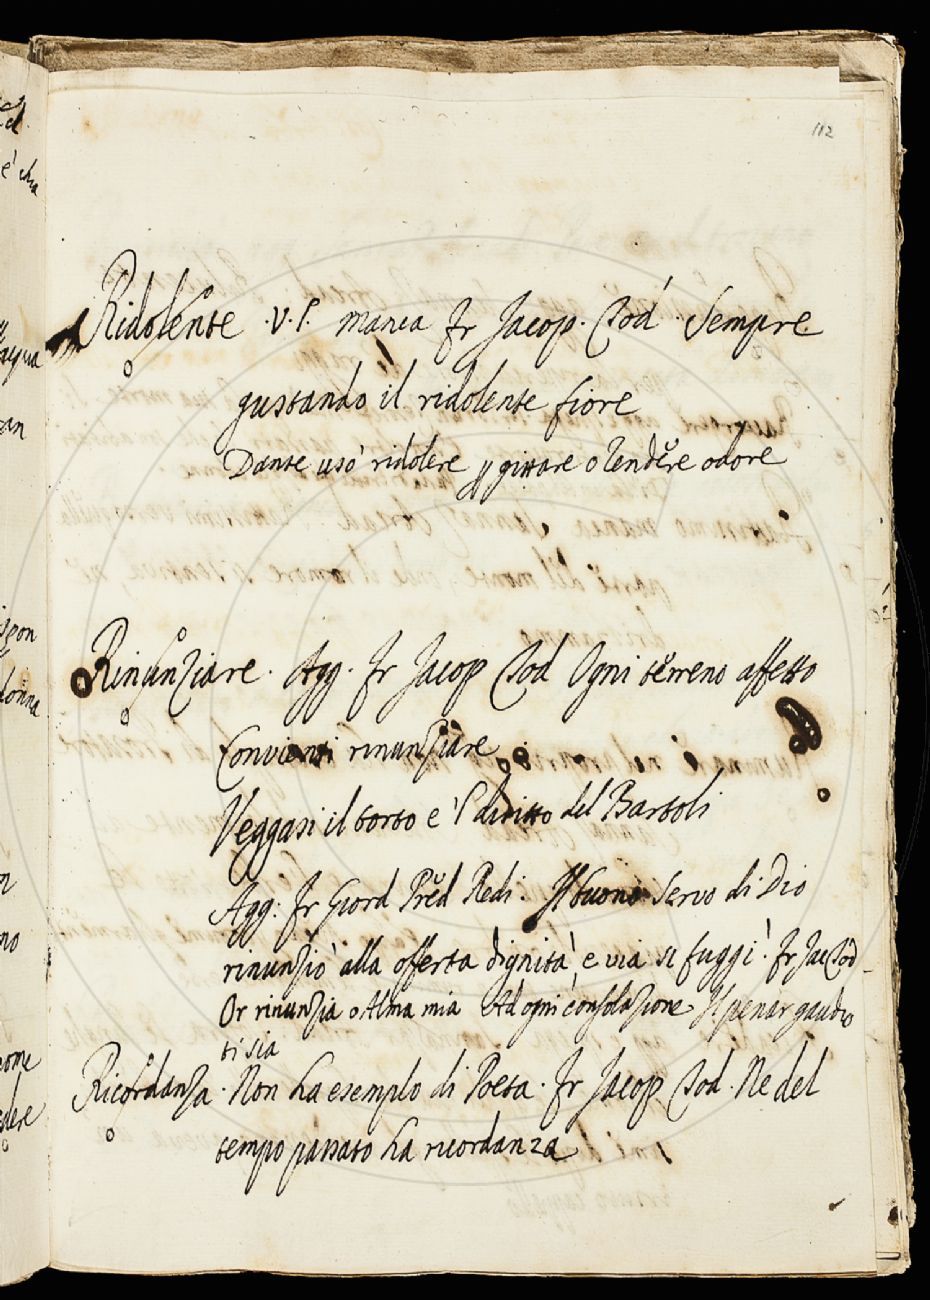 112
Ridolente .V.S. manca Fr Jacop. Tod. Sempre
gustando il ridolente fiore
Dante usò ridolere p gittare o rendere odore
Rinunziare. Agg. Fr Jacop Tod Ogni terreno affetto
Convienti rinunziare
Veggasi il torto e 'l diritto del Bartoli
Agg: Fr Giord Pred Redi. Il buono Servo di Dio
rinunziò alla offerta dignità, e via si fuggì. Fr Jac Tod
Or rinunzia o Alma mia Ad ogni consolazione Il penar gaudio
ti sia
Ricordanza. Non ha esemplo di Poeta. Fr Jacop Tod. Ne del
tempo passato ha ricordanza